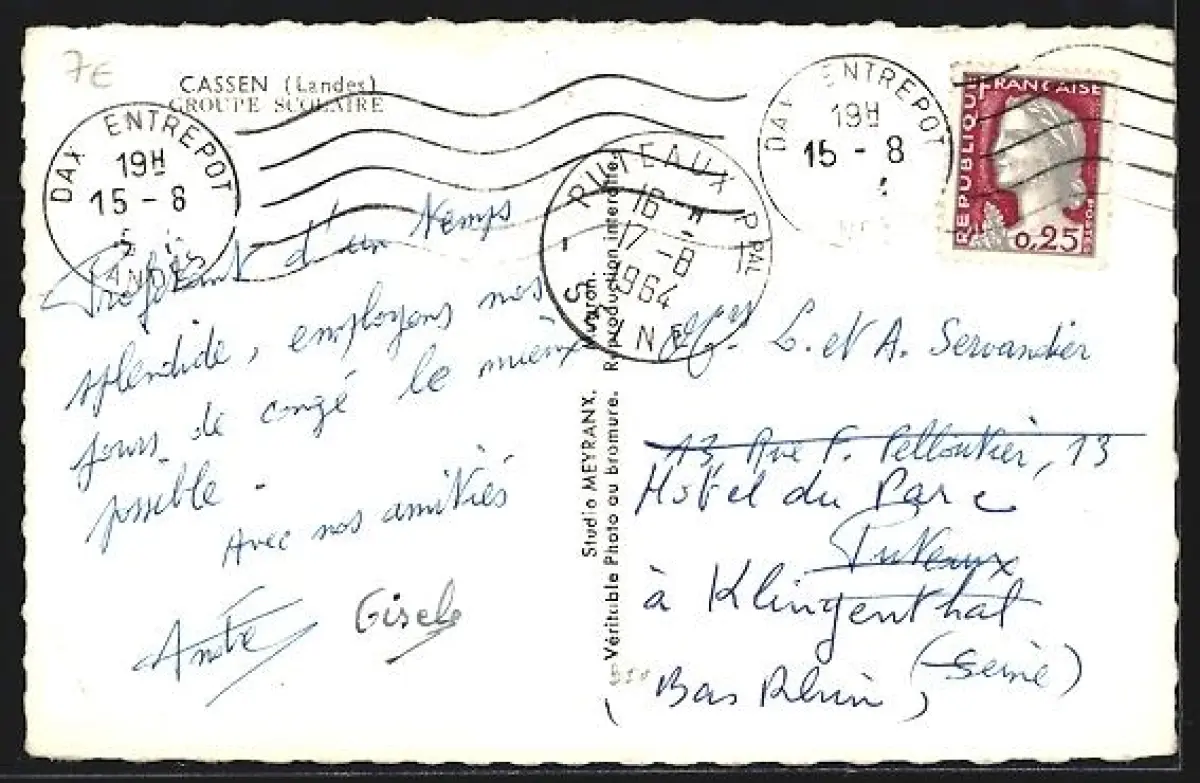 7E
CASSEN (Landes)
GROUPE SCOLAIRE
DAX ENTREPOT
19H
15 - 8
DAX ENTREPOT
19H
15 - 8
RÉPUBLIQUE FRANÇAISE
POSTES
0,25
PUTEAUX PPAL
16 H
17 - 8
1964
SEINE
Profitant d'un temps
splendide, employons nos
jours de congé le mieux
possible.
Avec nos amitiés
André Gisèle
Studio MEYRANX.
Véritable Photo au bromure. Reproduction interdite.
L. et A. Servandier
13 Rue F. Pelloutier, 13
Hôtel du Parc
Puteaux
à Klingenthal
(Seine)
(Bas Rhin)